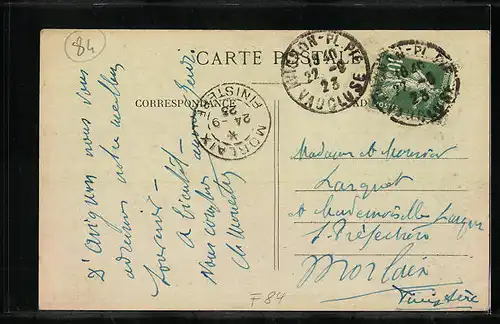 84
CARTE POSTALE
CORRESPONDANCE
AD
AVIGNON-PL PIE
18 40
22-9
23
VAUCLUSE
MORLAIX
24-9
23
FINISTERE
10
D'Avignon nous vous
adressons notre meilleur
souvenir -
A bientôt -
Nous comptons
Madame et Monsieur
Larquet
et Mademoiselle Larquet
S. Préfecture
Morlaix
Finistère
F84